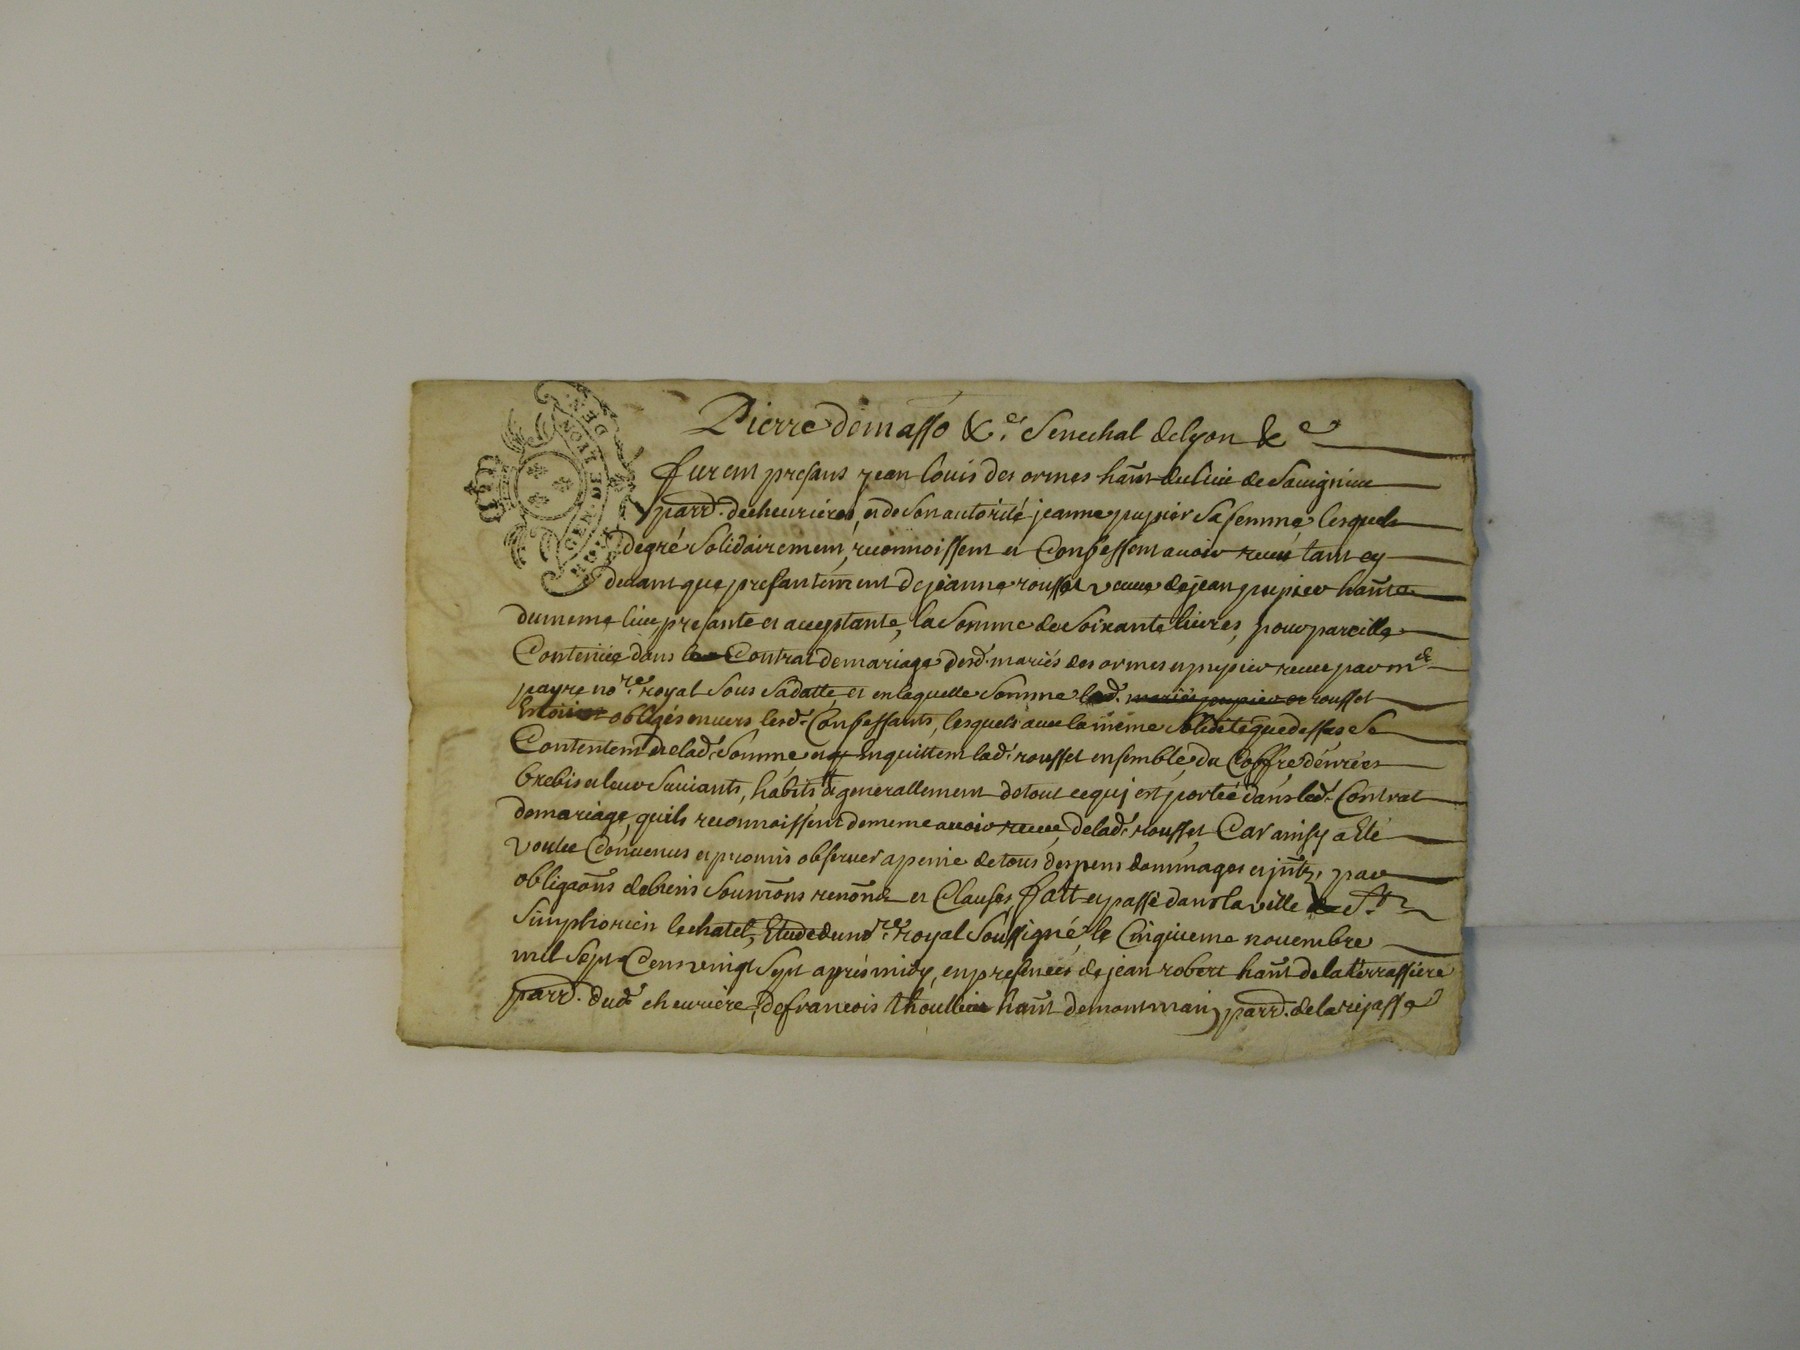 Pierre demasso &c.e Senechal delyon &c
Furent presans jean louis des ormes hañt du lieu de Sauignieu
parr.d decheurieres, et de Son autorité jeanne pupier Sa femme lesquels
degré Solidairement, reconnoissent et Confessent auoir receu tant cy
deuant que presantement de jeanne rousset veuue de jean pupier hañte
du meme lieu presante et acceptante, la Somme de Soixante liures, pour pareille
Contenüe dans le Contrat de mariage desd. mariés des ormes et pupier receu par m.e
payre no.re royal Sous Sa datte, et en laquelle Somme lad. mariés pupier et rousset
Estoit obligés enuers lesd. Confessants, lesquels auec la meme Solidité que dessus Se
Contentent de lad. Somme et en quittent lad. rousset ensemble, du Coffre denrées
brebis et leur Suiuants, habits et generallement de tout ce quj est porté dans led. Contrat
de mariage, quils reconnoissent de meme auoir receu de lad. rousset, Car ainsy a Eté
voulu Conuenus et promis obseruer a peine de tous despens dommages et jnt.z, par
obligaõns de biens Soumõns renonõn et Clauses, fait et passé dans la ville de S.t
Simphorien le chatel, Etude du no.re royal Soussigné, le Cinquieme nouembre
mil Sept Cens vingt Sept apres midy, en presences de jean robert hañt de la terrassiere
parr.d dud. cheurieres, de francois thoullieu hañt de montmain parr.d de larajasse
GEN. DE LYON